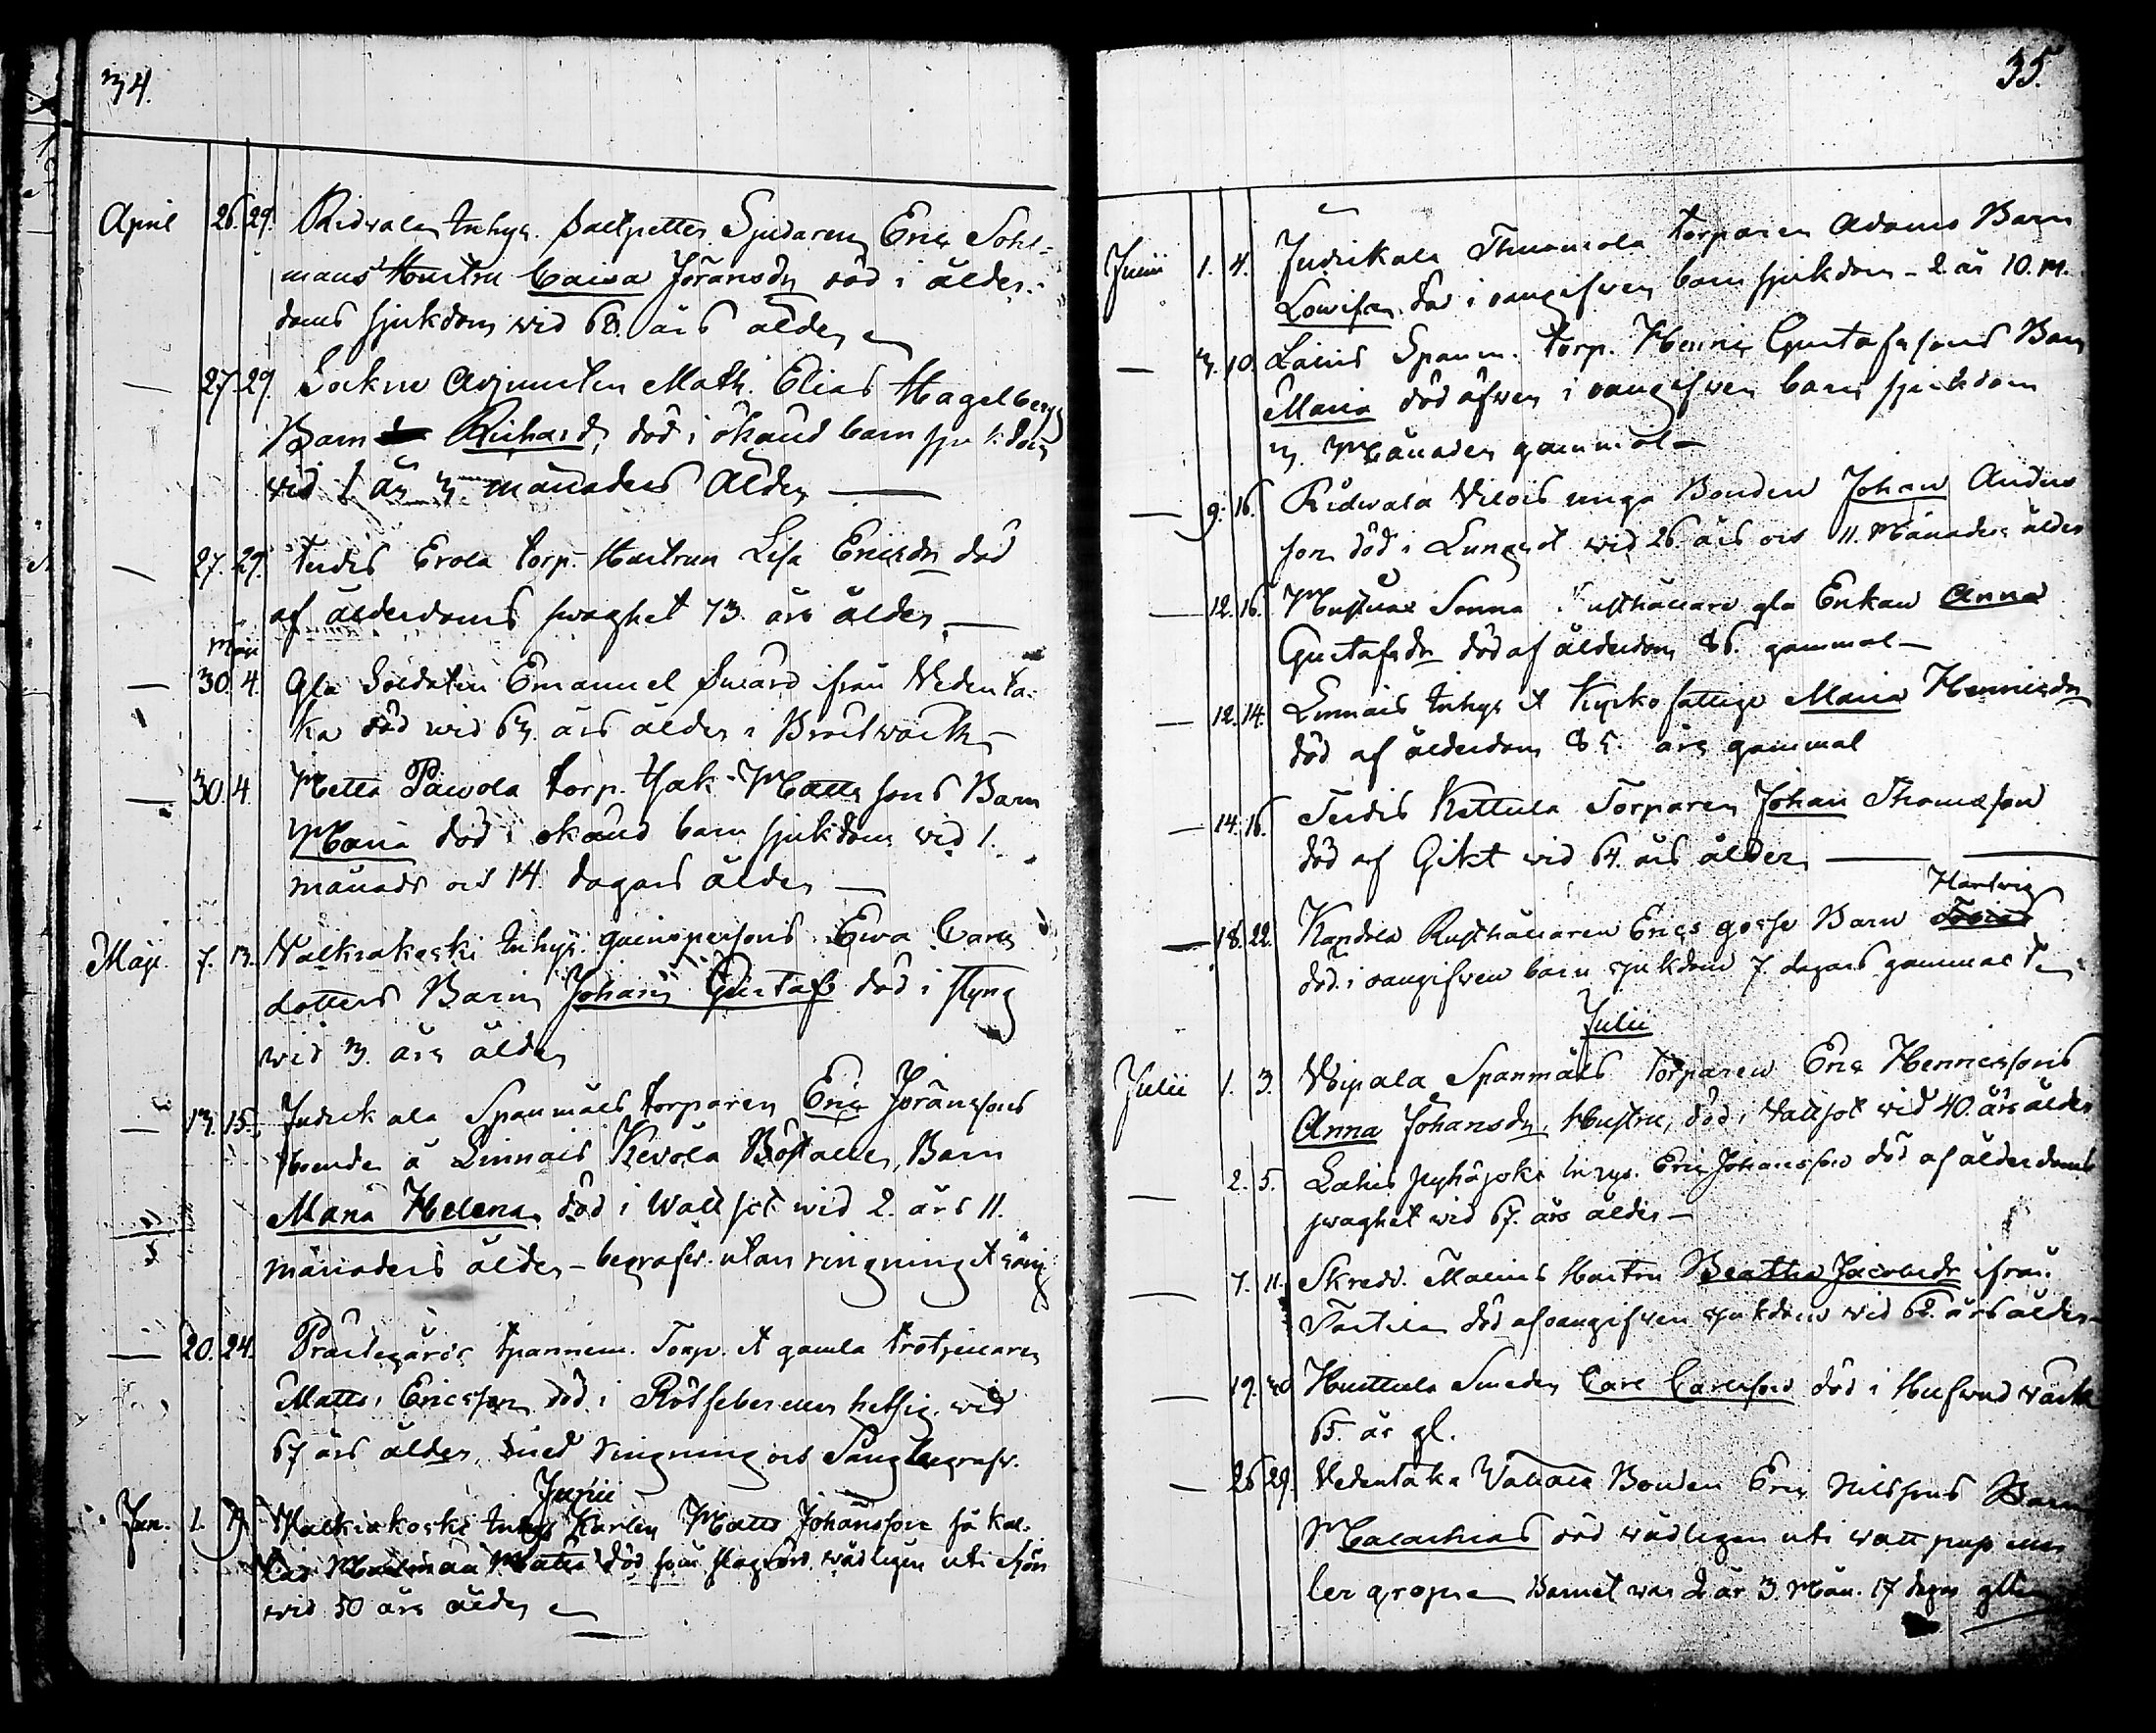 34.
April 26. 29. Ridvala Inhys. Saltpetter Sjudaren Eric Sohl-
mans Hustru Caisa Jöransdr död i ålder-
doms sjukdom wid 68. års ålder
— 27. 29. Sockne Adjuncten Math. Elias Hagelbergs
Barn Richard, död i okänd barn sjukdom
wid 1 år 3 månaders ålder —
— 27. 29. Erola torp. Hustrun Lisa Ericsdr död
af ålderdoms swaghet 73. års ålder —
Maji
— 30. 4. Gla Soldaten Emanuel Swärd ifrån Wedenta-
ka död wid 63. års ålder i Bröstwärk
— 30. 4. Metta Pawola torp. Isak Matts sons Barn
Maria död i okänd barn sjukdom wid 1.
månads och 14 dagars ålder —
Maji 7. 13. Walkiakoski Inhys. qwinspersons Ewa Carls
dotters Barn Johan Gustaf död i styng
wid 3. års ålder
— 13. 15. Judickala Spanmåls torparen Eric Jöranssons
boende å Linnais Kevola Boställe, Barn
Maria Helena död i Wattsot wid 2. års 11.
månaders ålder – begrafw. utan ringning et sång
— 20. 24. Prästegårds spannem. Torp. et gamla trotjenaren
Matts Ericsson död i Rötfeber med hetsig wid
67 års ålder, med ringning och Sång begrafw.
Junii
Jun. 1. Walkiakoski Inhys Karlen Matts Johansson så kal-
lad Matts död som slagrörd wådligen uti sjön
wid 50 års ålder
35.
Junii 1. 4. Judikala Thuomola torparen Adams Barn
Lowisa, död i oangifwen barn sjukdom – 2 år 10. M.
— 3. 10. Lainis Spanm. torp. Henric Gustafssons Barn
Maria död äfwen i oangifwen barn sjukdom
3. Månader gammal —
— 9. 16. Ridvala Wilois unga Bonden Johan Anders
son död i Lungsot wid 26. års och 11. Månaders ålder
— 12. 16. Sonna Rusthållare gla Enkan Anna
Gustafsdr död af ålderdom 86. gammal —
— 12. 14. Linnais Inhys et Kyrko fattige Maria Henricsdr
död af ålderdom 85. års gammal
— 14. 16. Kettula Torparen Johan Thomasson
död af Gikt wid 64. års ålder —
Hartvig
— 18. 22. Kandola Rusthållaren Erics gosse Barn Tobias
död i oangifwen barn sjukdom 7. dagars gammalt
Julii
Julii 1. 3. Woipala Spanmåls torparen Eric Henricssons
Anna Johansdr, Hustru, död i Wattsot wid 40. års ålder
— 2. 5. Lahis Inhys. Eric Johansson död af ålderdoms
swaghet wid 67. års ålder —
— 7. 11. Skredd. Malins Hustru Beatha Jacobsdr ifrån
död af oangifwen sjukdom wid 62. års ålder —
— 19. 20 Huittula Smeden Carl Carlsson död i Hufwud wärk
65. år gl.
— 26 29. Wedentaka Wahala Bonden Eric Nilssons Barn
Malachias död wådligen uti watt pup el-
ler gropen Barnet war 2 år 3. Mån. 17 dagar glt